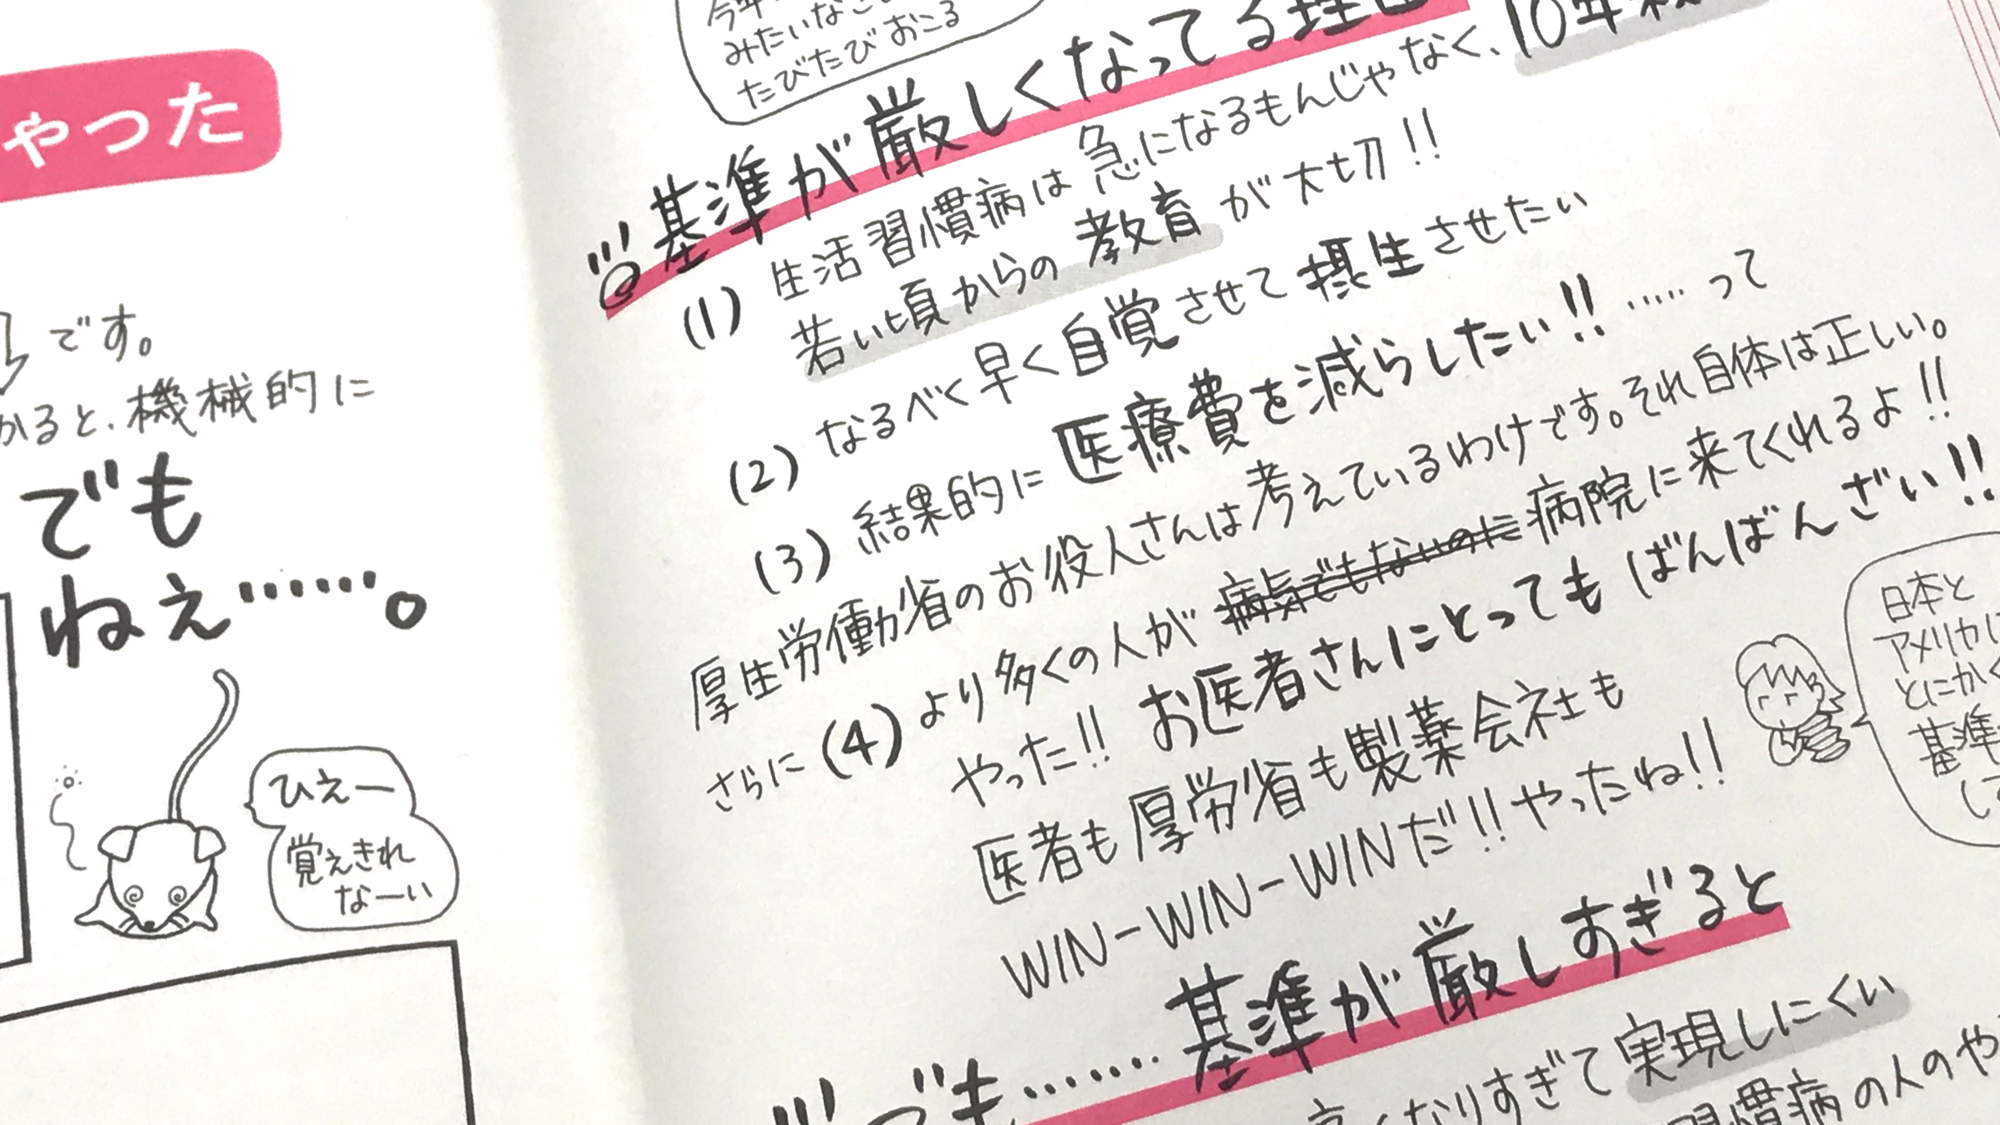 やった
です。
かると、機械的に
でも
ねぇ……。
ひえー
覚えきれ
なーい
みたいなこ
たびたびおこる
基準が厳しくなってる理由
(1) 生活習慣病は急になるもんじゃなく、10年
若い頃からの教育が大切!!
(2) なるべく早く自覚させて摂生させたい
(3) 結果的に医療費を減らしたい!!……って
厚生労働省のお役人さんは考えているわけです。それ自体は正しい。
さらに(4) より多くの人が病気でもないのに病院に来てくれるよ!!
やった!! お医者さんにとってもばんばんざい!!
医者も厚労省も製薬会社も
WIN-WIN-WINだ!! やったね!!
日本と
アメリカに
とにかく
基準
して
でも……基準が厳しすぎると
くなりすぎて実現しにくい
習慣病の人のや